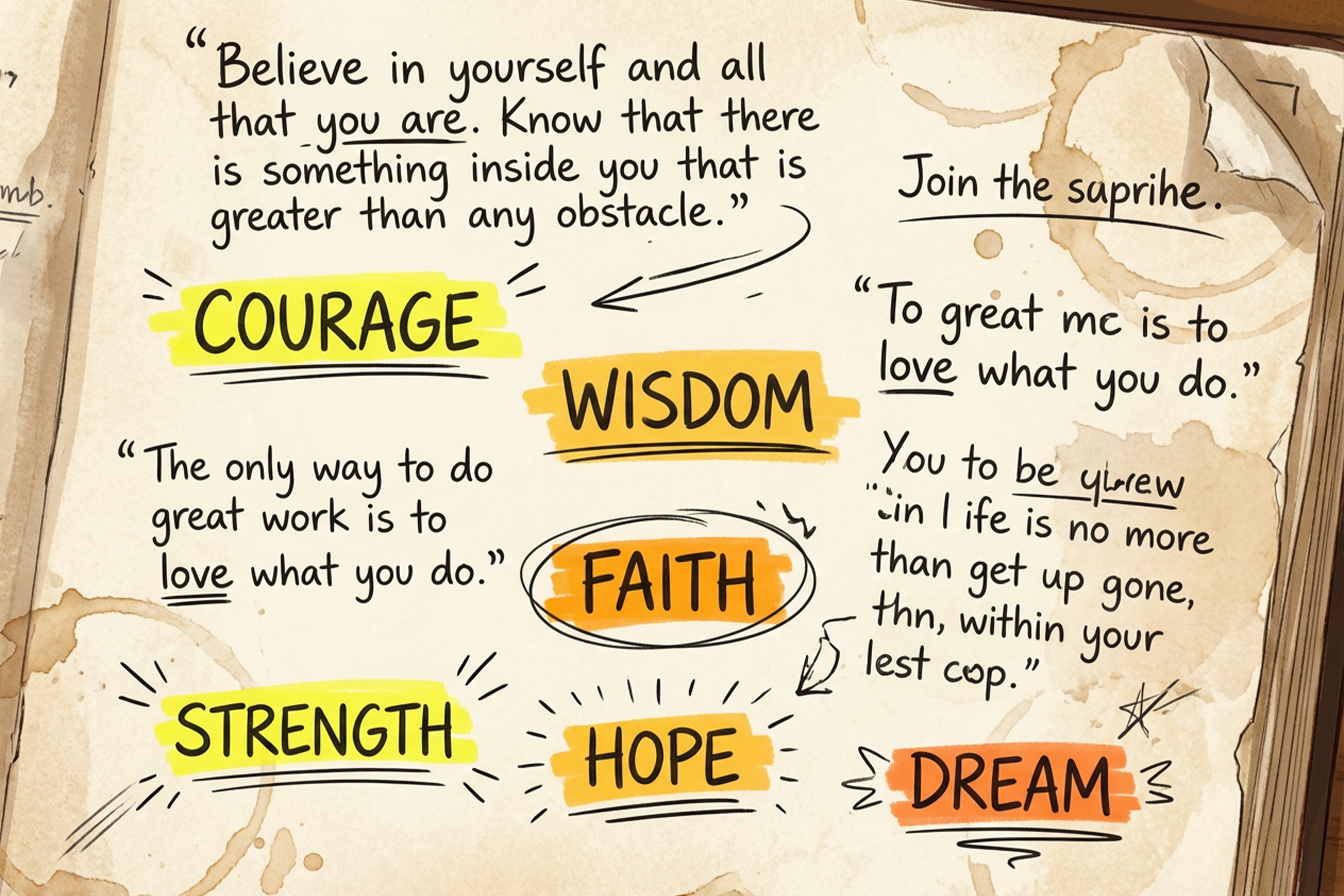 “Believe in yourself and all
that you are. Know that there
is something inside you that is
greater than any obstacle.”
COURAGE
WISDOM
“The only way to do
great work is to
love what you do.”
FAITH
STRENGTH
HOPE
Join the saprihe.
“To great mc is to
love what you do.”
You to be
in life is no more
than get up gone,
thn, within your
lest cop.”
DREAM
mb.